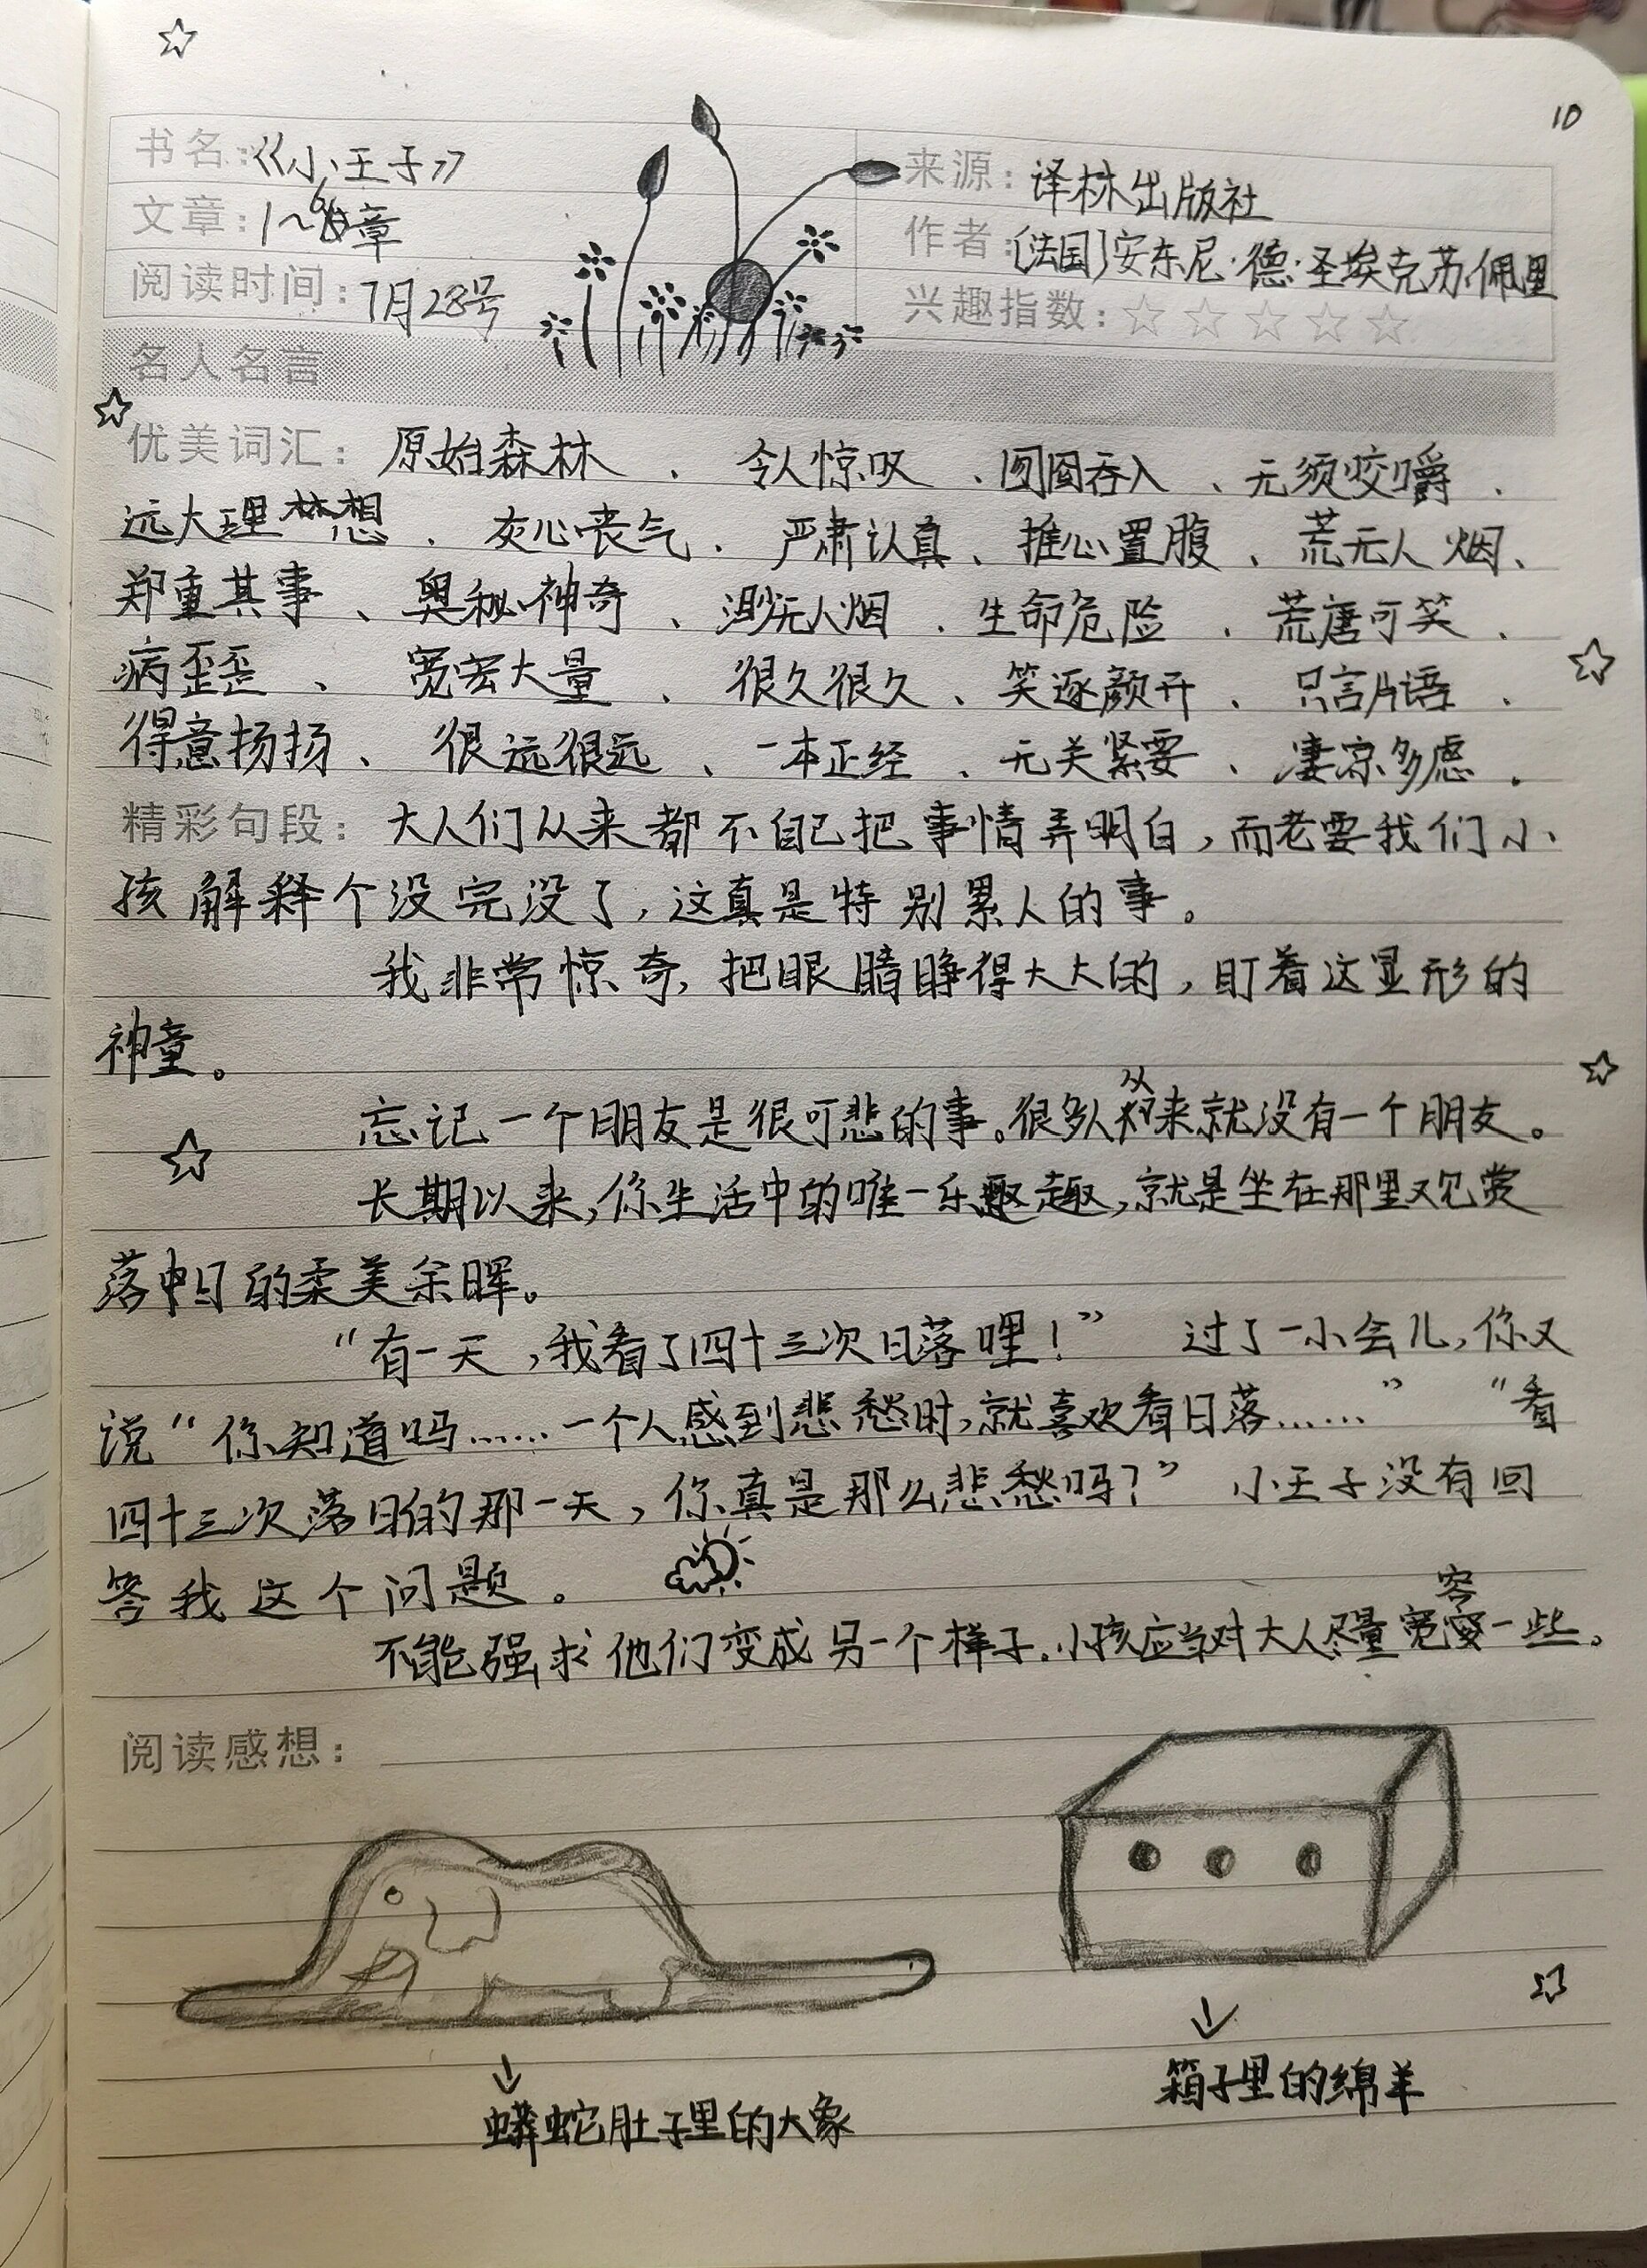 10
书名:《小王子》
来源:译林出版社
文章:1~6章
作者:[法国]安东尼·德·圣埃克苏佩里
阅读时间:7月28号
兴趣指数:☆☆☆☆☆
名人名言
优美词汇:原始森林、令人惊叹、囫囵吞入、无须咬嚼、
远大理想、灰心丧气、严肃认真、推心置腹、荒无人烟、
郑重其事、奥秘神奇、渺无人烟、生命危险、荒唐可笑、
病歪歪、宽宏大量、很久很久、笑逐颜开、只言片语、
得意扬扬、很远很远、一本正经、无关紧要、凄凉多虑。
精彩句段:大人们从来都不自己把事情弄明白,而老要我们小
孩解释个没完没了,这真是特别累人的事。
我非常惊奇,把眼睛睁得大大的,盯着这显形的
神童。
忘记一个朋友是很可悲的事。很多人从来就没有一个朋友。
长期以来,你生活中的唯一乐趣,就是坐在那里观赏
落日的柔美余晖。
“有一天,我看了四十三次日落哩!” 过了一小会儿,你又
说“你知道吗……一个人感到悲愁时,就喜欢看日落……” “看
四十三次落日的那一天,你真是那么悲愁吗?” 小王子没有回
答我这个问题。
不能强求他们变成另一个样子.小孩应当对大人尽量宽容一些。
阅读感想:
箱子里的绵羊
蟒蛇肚子里的大象